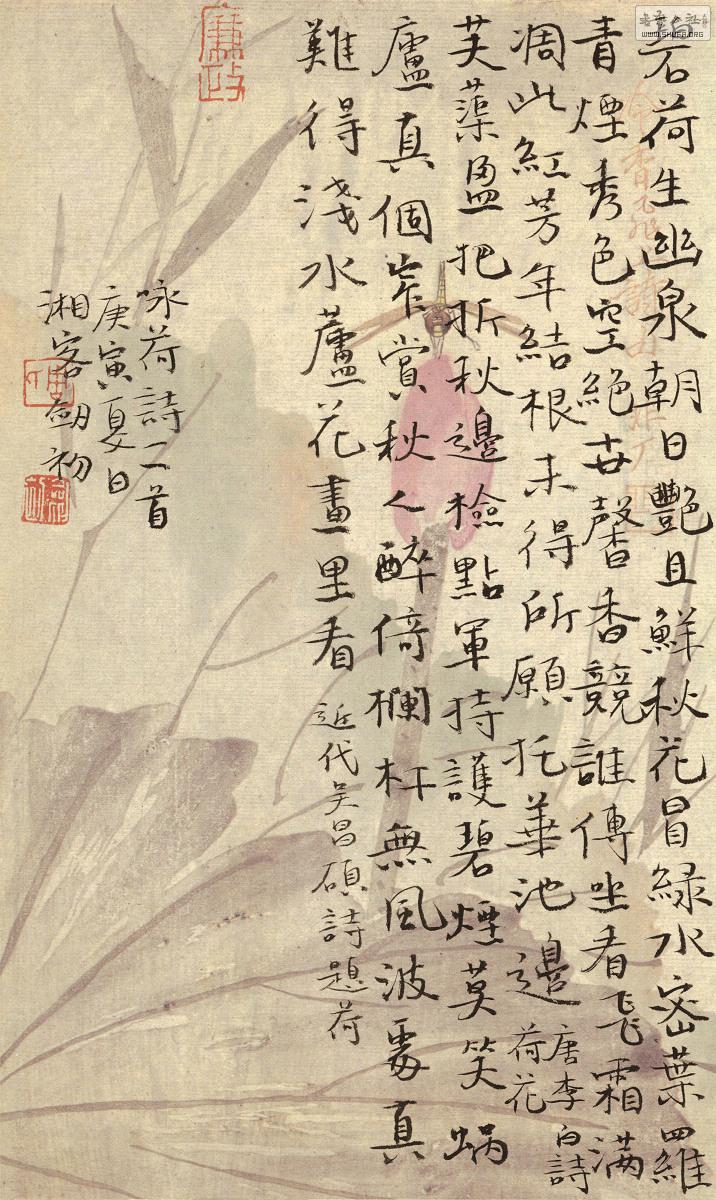 碧荷生幽泉朝日艷且鮮秋花冒緑水密葉羅
青煙秀色空絕世馨香競誰傳坐看飛霜满
凋此紅芳年結根未得所願托華池邊
唐李白詩
荷花
芙蕖盈把折秋邊檢點軍持護碧煙莫笑蝸
廬真個窄賞秋人醉倚欄杆無風波處真
難得淺水蘆花畫里看
近代吴昌碩詩題荷
咏荷詩二首
庚寅夏日
湘客劍初
廉政
WWW.SHUFA.ORG